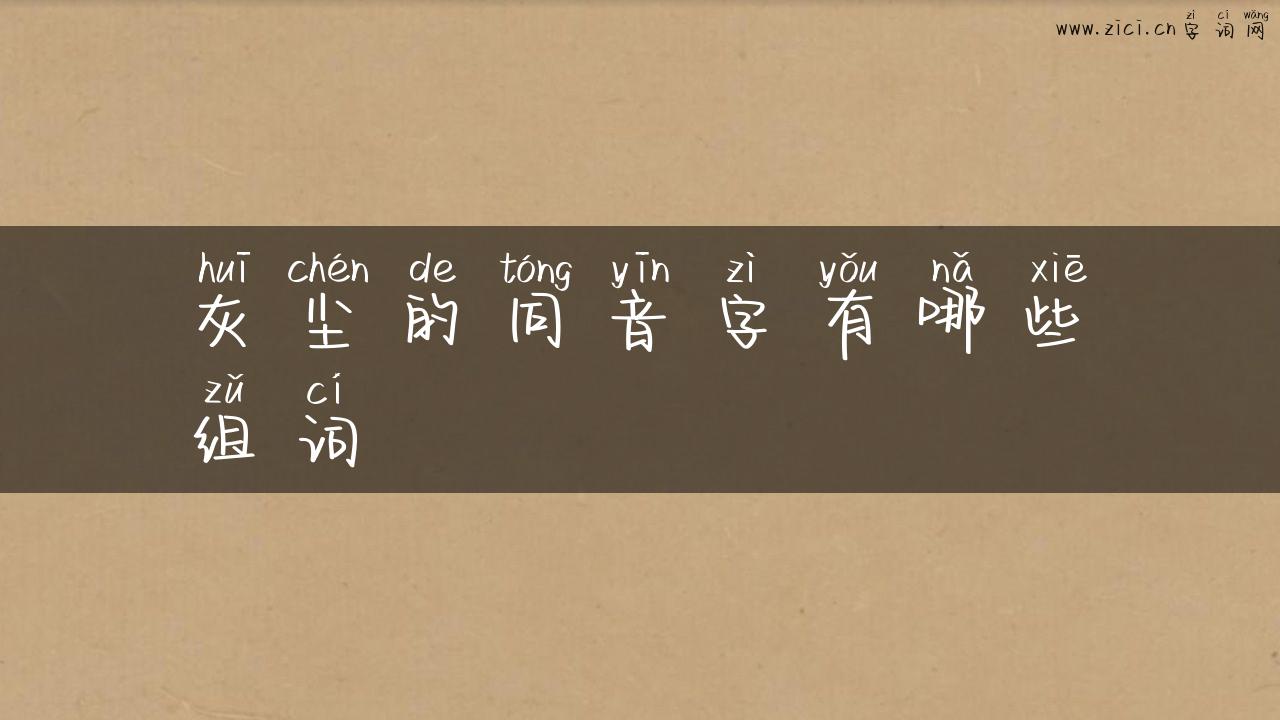 zì cí wǎng
www.zici.cn 字 词 网
huī chén de tóng yīn zì yǒu nǎ xiē
灰 尘 的 同 音 字 有 哪 些
zǔ cí
组 词